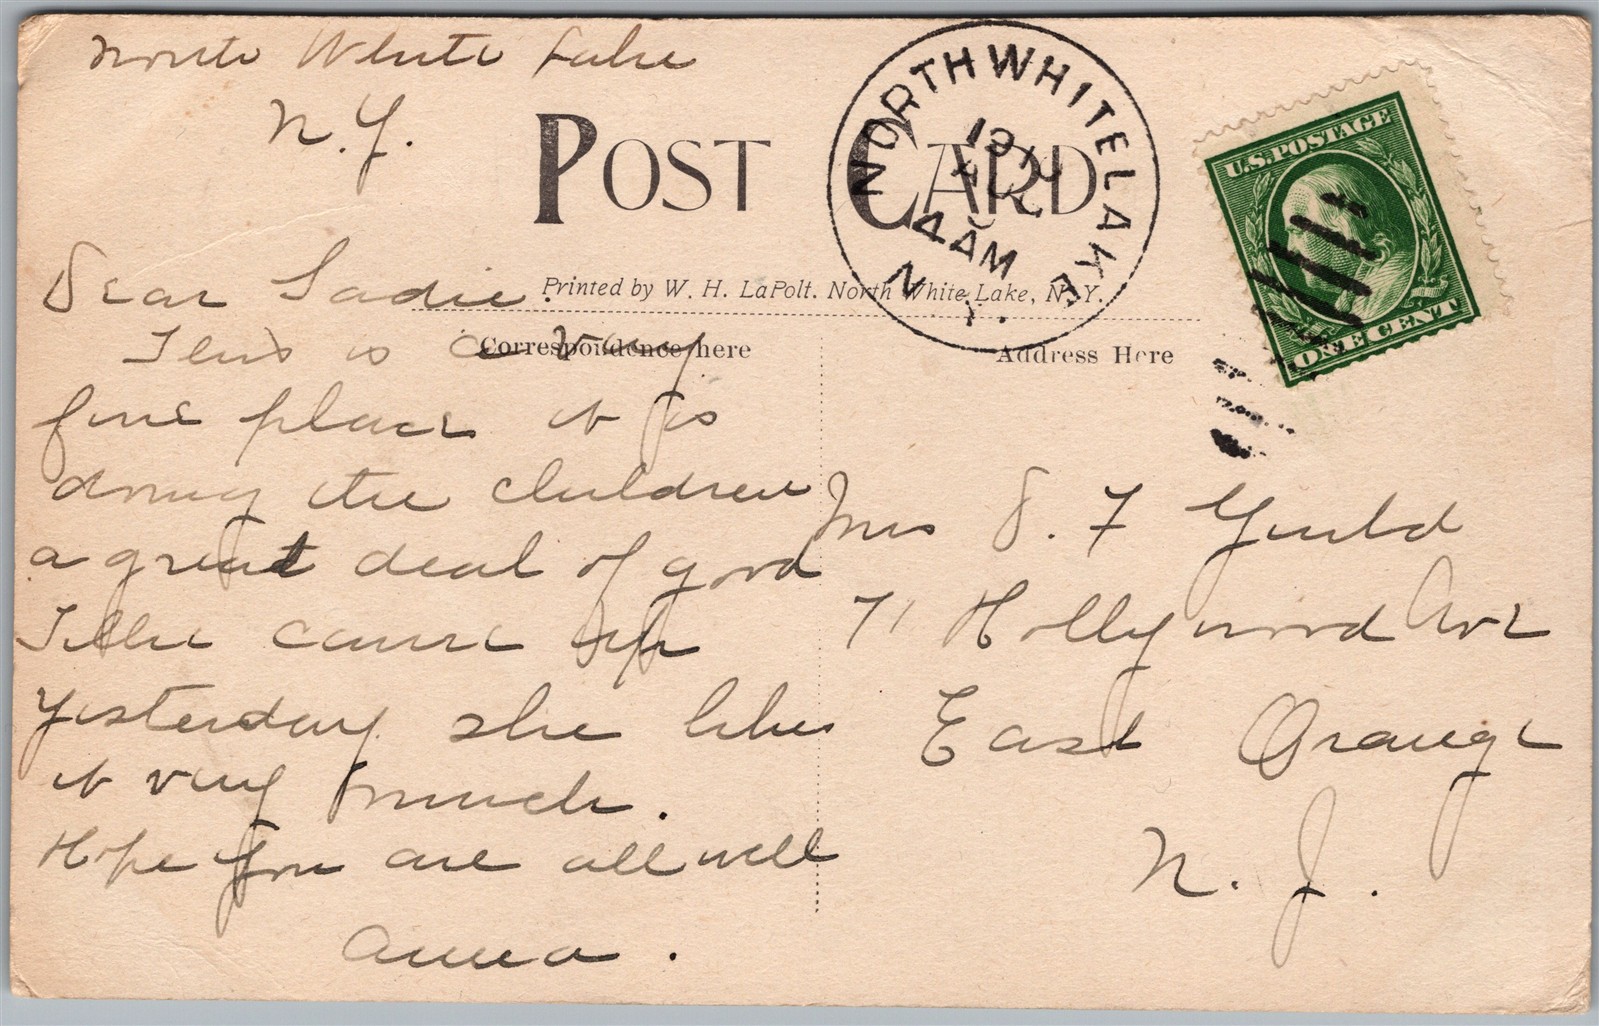 North White Lake
N.Y.
POST CARD
NORTH WHITE LAKE
4 AM
N.Y.
U.S. POSTAGE
ONE CENT
Printed by W. H. LaPolt. North White Lake, N. Y.
Correspondence here
Address Here
Dear Sadie.
This is a very
fine place it is
doing the children
a great deal of good
Tillie came up
yesterday she likes
it very much.
Hope you are all well
Anna.
Mrs S. F Guild
71 Hollywood Ave
East Orange
N. J.